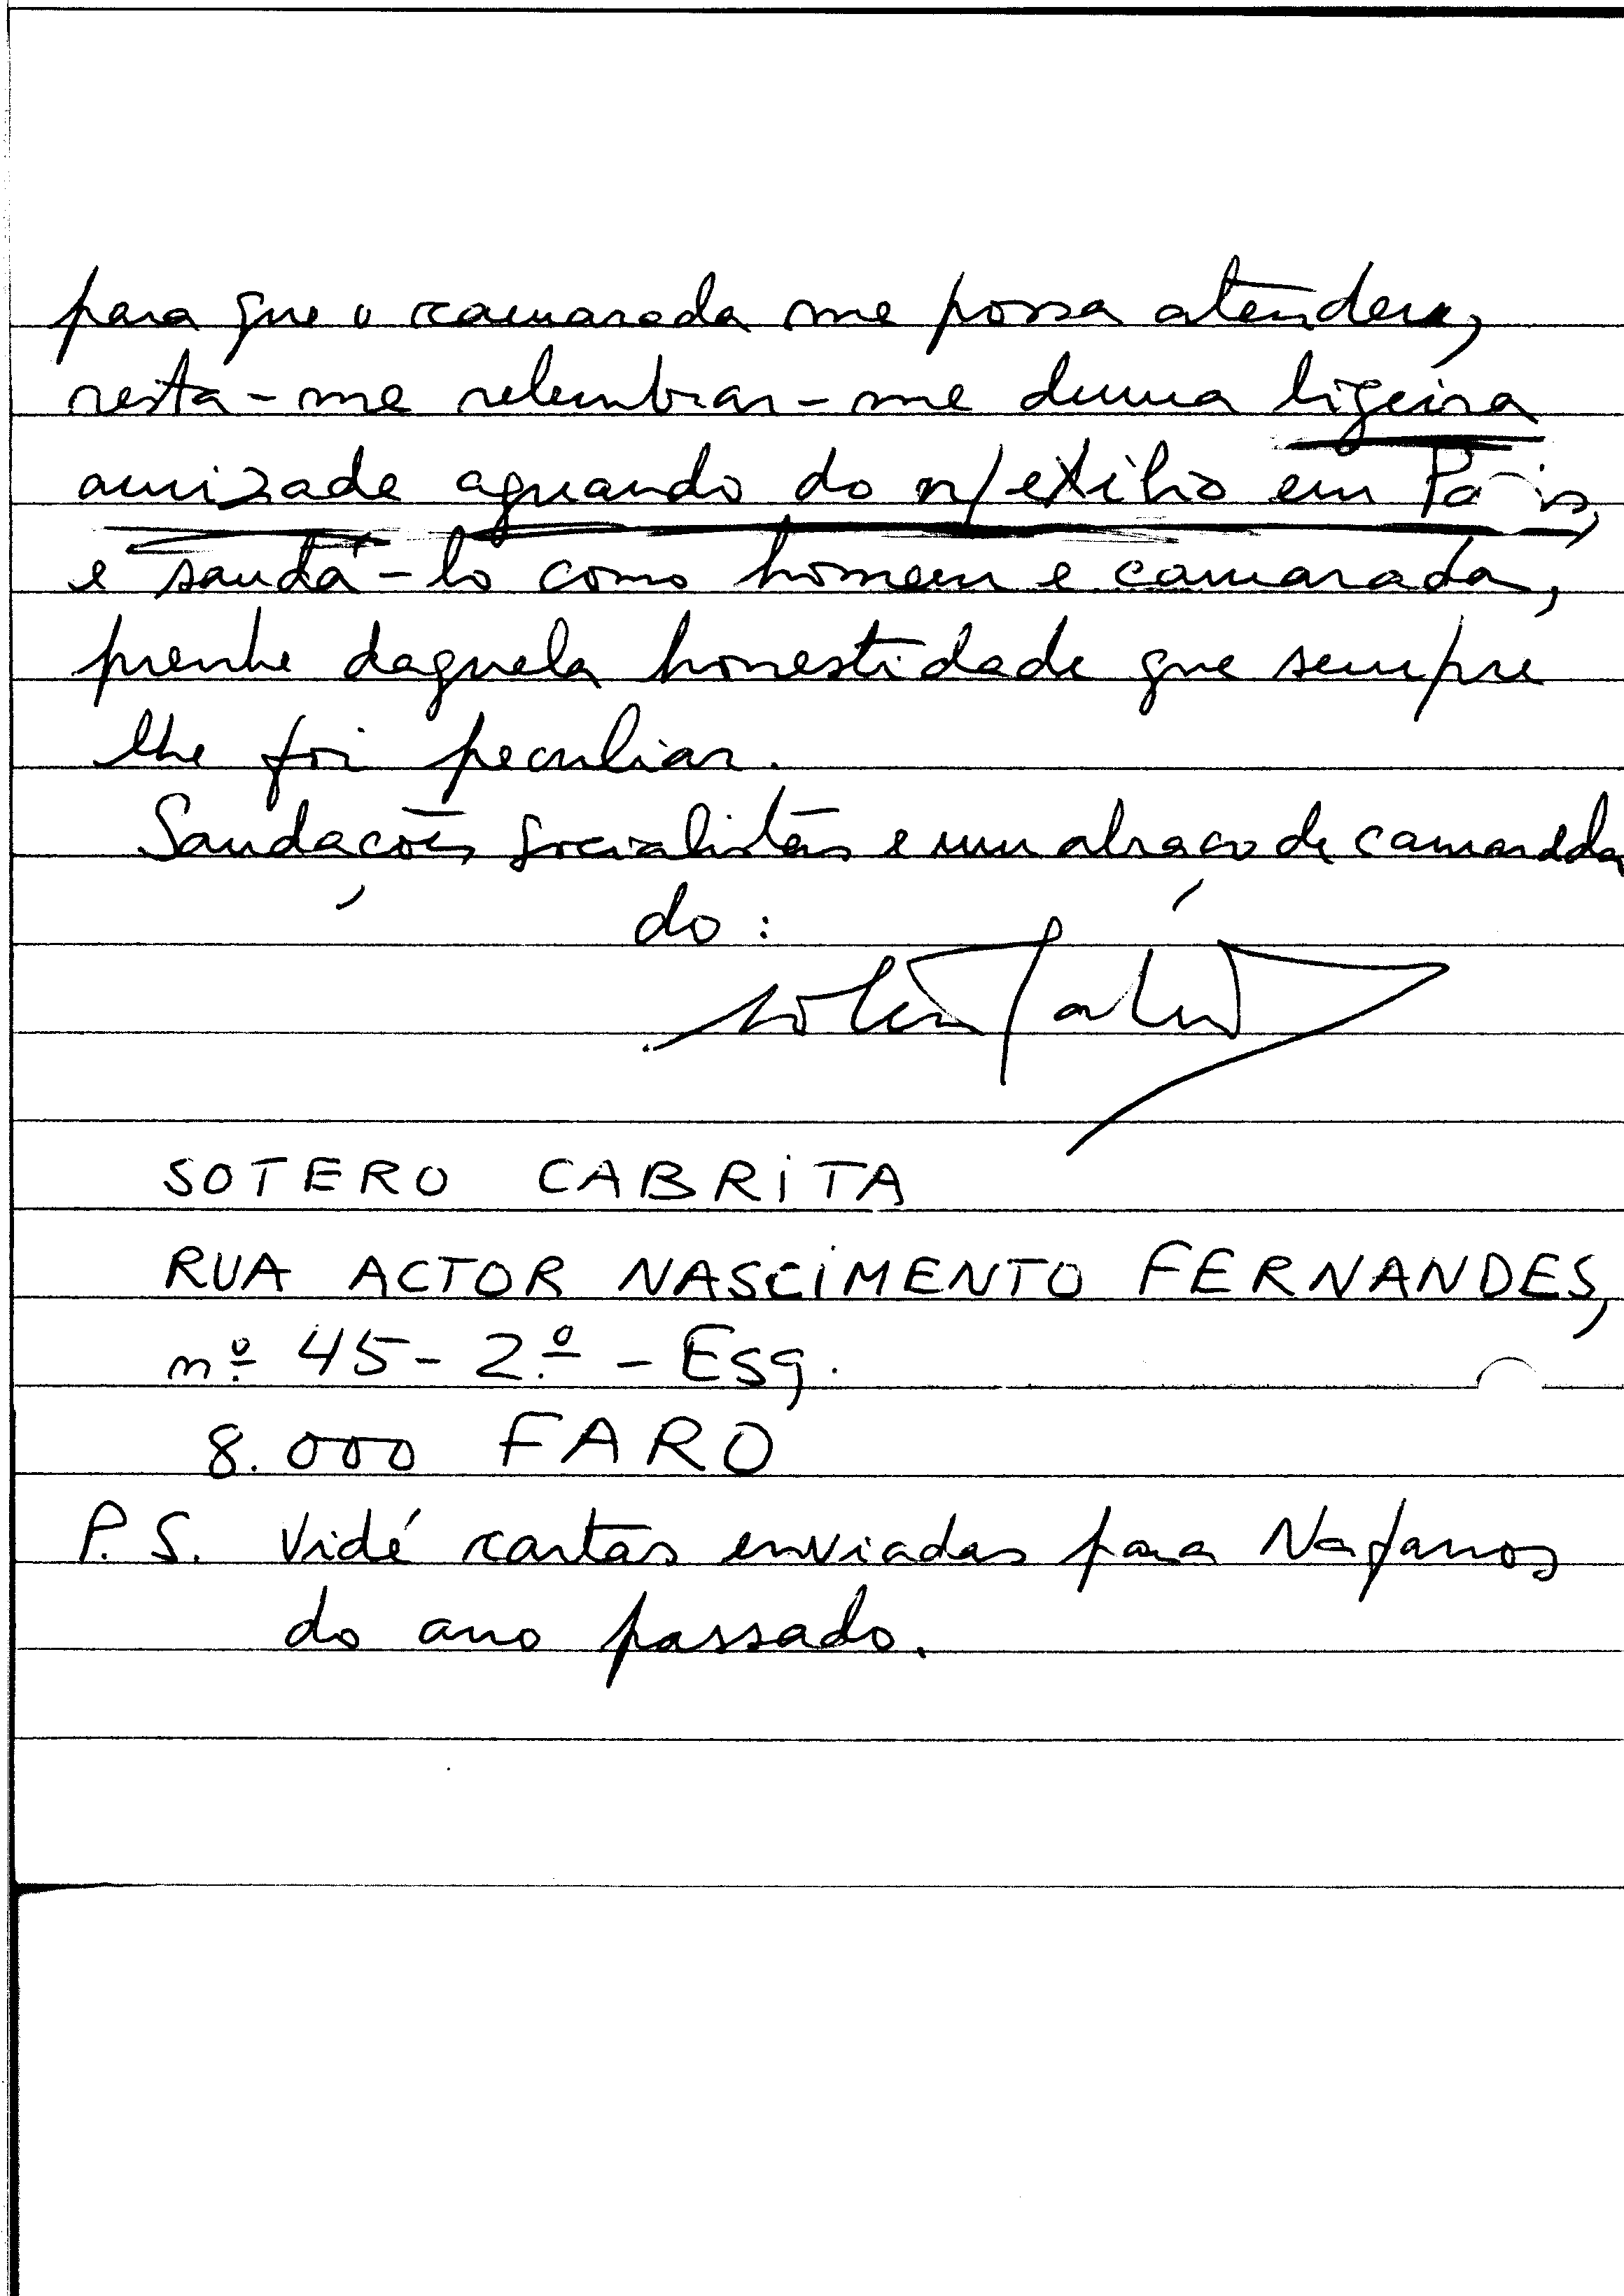 para que o camarada me possa atender,
resta-me relembrar-me duma ligeira
amizade aquando do n/exílio em Paris,
e saudá-lo como homem e camarada,
prenhe daquela honestidade que sempre
lhe foi peculiar.
Saudações Socialistas e um abraço de camarada
do:
SOTERO CABRITA
RUA ACTOR NASCIMENTO FERNANDES,
nº 45-2.º - Esq.
8.000 FARO
P.S. Vidé cartas enviadas para Nafarros
do ano passado.